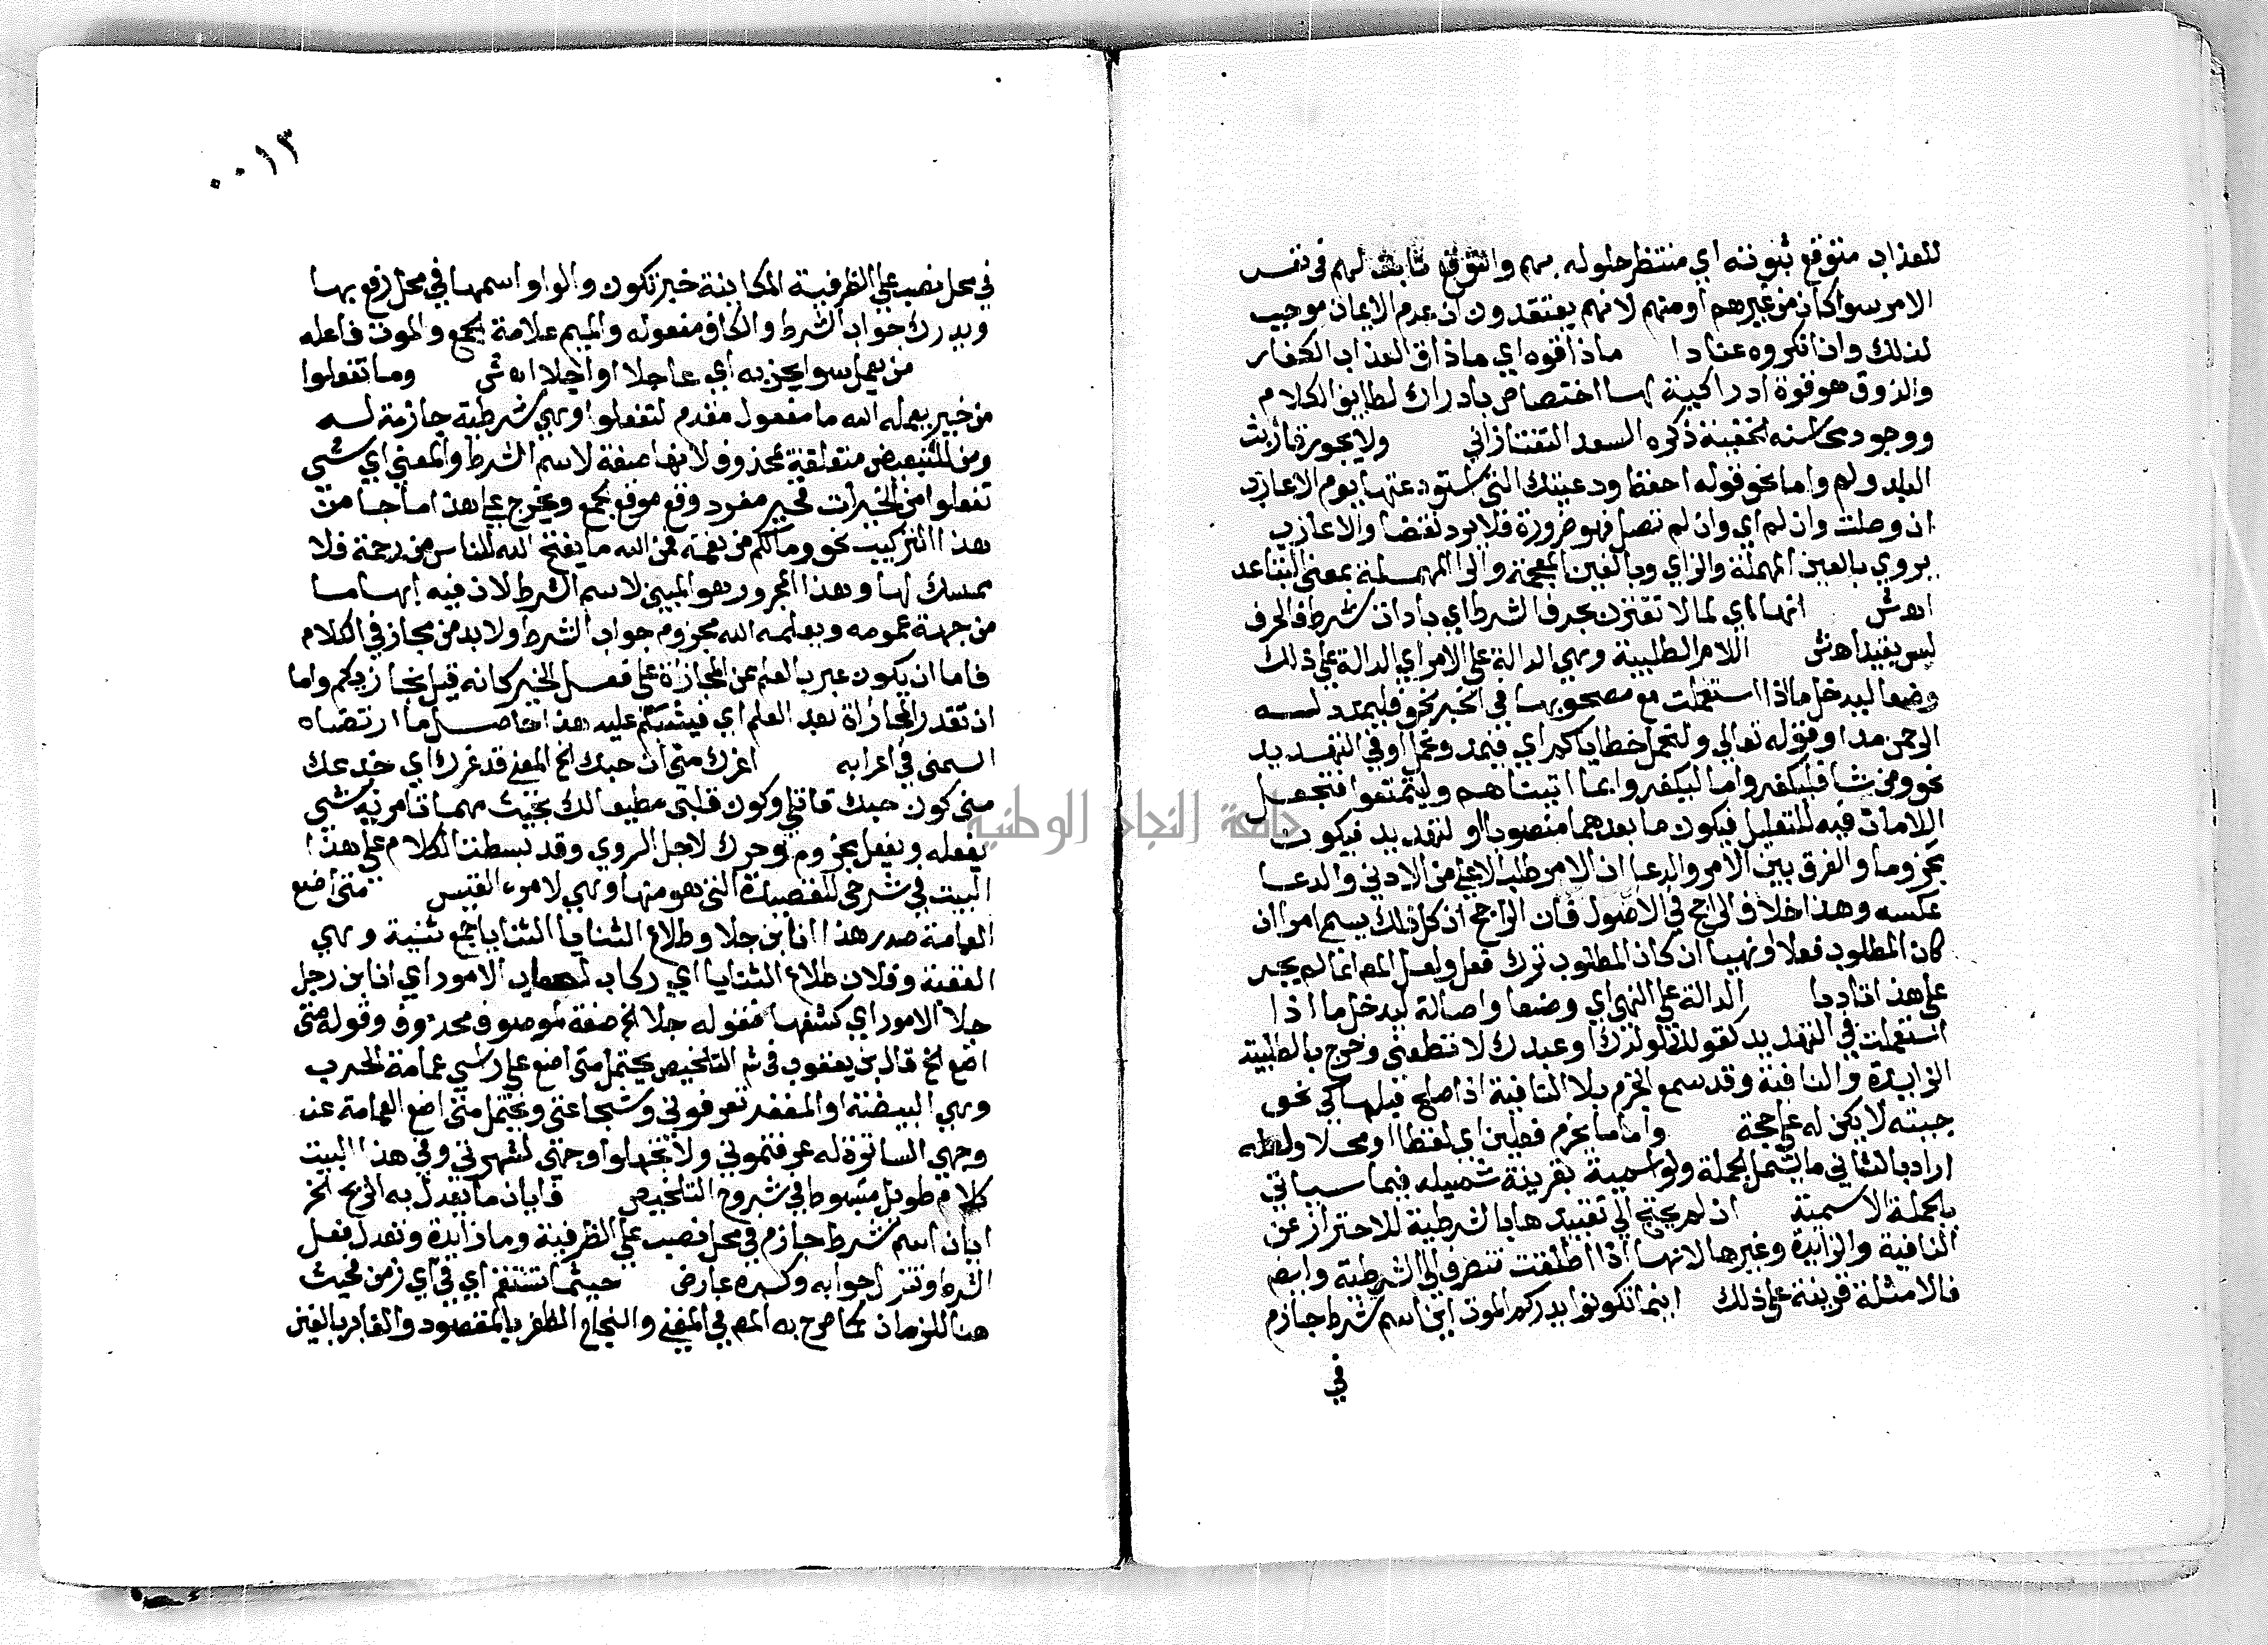 للعذاب متوقع ثبوته اي منتظر حلوله بهم والتوقع ثابت لهم في نفس
الامر سوا كان من غيرهم او منهم لانهم يعتقدون ان عدم الايمان موجب
لذلك وان انكروه عنادا ماذاقوه اي ماذاق العذاب الكفار
والذوق هو قوة ادراكية لها اختصاص بادراك لطايف الكلام
ووجود محاسنه الخفية ذكره السعد التفتازاني ولا يجوز قاربت
البلد ولم واما نحو قوله احفظ وديعتك التي استودعتها يوم الاعازب
ان وصلت وان لم اي وان لم تصل فهو ضرورة فلا يرد نقضا والاعازب
يروي بالعين المهملة والزاي وبالغين المعجمة والرا المهملة بمعني التباعد
اه ش انها اي لما لا تقترن بحرف الشرط اي باداة شرط فالحرف
ليس بقيد اه ش اللام الطلبية وهي الدالة علي الامر اي الدالة علي ذلك
وضعا ليدخل ما اذا استعملت مع مصحوبها في الخبر نحو فليمدد له
الرحمن مدا وقوله تعالي ولنحمل خطاياكم اي فيمد ونحمل او في التهديد
نحو ومن شا فليكفر واما ليكفروا بما اتيناهم وليتمتعوا فتحتمل
اللامان فيه للتعليل فيكون ما بعدهما منصوبا او لتهديد فيكون
مجزوما والفرق بين الامر والدعا ان الامر طلب الاعلي من الادني والدعا
عكسه وهذا خلاف الراجح في الاصول فان الراجح ان كل ذلك يسمي امرا ان
كان المطلوب فعلا ونهيا ان كان المطلوب ترك فعل ولعل المص انما لم يجر
علي هذا تادبا الدالة علي النهي اي وضعا واصالة ليدخل ما اذا
استعملت في التهديد كقولك لولدك او عبدك لا تطعني وخرج بالطلبية
الزايدة والنافية وقد سمع الجزم بلا النافية اذا صلح قبلها كي نحو
جيته لا يكن له علي حجة واما ما يجزم فعلين اي لفظا او محلا ولعله
اراد بالثاني ما يشمل الجملة ولو اسمية بقرينة تمثيله فيما سياتي
بالجملة الاسمية ان لم يحتج الي تقييدها بالشرطية للاحتراز عن
النافية والزايدة وغيرها لانها اذا اطلقت تنصرف الي الشرطية وايضا
فالامثلة قرينة علي ذلك اينما تكونوا يدرككم الموت اين اسم شرط جازم
في
٠٠١٣
في محل نصب علي الظرفية المكانية خبر تكون والواو اسمها في محل رفع بها
ويدرك جواب الشرط والكاف مفعوله والميم علامة الجمع والموت فاعله
من يعمل سوا يجز به اي عاجلا او اجلا اه ش وما تفعلوا
من خير يعلمه الله ما مفعول مقدم لتفعلوا وهي شرطية جازمة له
ومن للتبعيض متعلقة بمحذوف لانها صفة لاسم الشرط والمعني اي شي
تفعلوا من الخيرات فخير مفرد وقع موقع الجمع ويخرج علي هذا ما جا من
هذا التركيب نحو وما بكم من نعمة فمن الله ما يفتح الله للناس من رحمة فلا
ممسك لها وهذا المجرور هو المبين لاسم الشرط لان فيه ابهاما
من جهة عمومه ويعلمه الله مجزوم جواب الشرط ولا بد من مجاز في الكلام
فاما ان يكون عبر بالعلم عن المجازاة علي فعل الخير كانه قيل يجازيكم واما
ان تقدر المجازاة بعد العلم اي فيثيبكم عليه هذا حاصل ما ارتضاه
السمين في اعرابه اغرك مني ان حبك الخ المعني قد غرك اي خدعك
مني كون حبك قاتلي وكون قلبي مطيعا لك بحيث مهما تامريه بشي
يفعله ويفعل مجزوم وحرك لاجل الروي وقد بسطنا الكلام علي هذا
البيت في شرحي للقصيدة التي هو منها وهي لامرء القيس متي اضع
العمامة صدر هذا انا ابن جلا وطلاع الثنايا الثنايا جمع ثنية وهي
العقبة وفلان طلاع الثنايا اي ركاب لصعاب الامور اي انا ابن رجل
جلا الامور اي كشفها فقوله جلا الخ صفة لموصوف محذوف وقوله متي
اضع الخ قال بن يعقوب في ش التلخيص يحتمل متي اضع علي راسي عمامة الحرب
وهي البيضة او المغفر تعرفوني وشجاعتي ويحتمل متي اضع العمامة عن
وجهي الساترة له عرفتموني ولا تجهلوا وجهي لشهرتي وفي هذا البيت
كلام طويل مبسوط في شروح التلخيص فايان ما تعدل به الريح الخ
ايان اسم شرط جازم في محل نصب علي الظرفية وما زايدة وتعدل فعل
الشرط وتنزل جوابه وكسره عارض حيثما تستقم اي في اي زمن فحيث
هنا للزمان كما صرح به المص في المغني والنجاح الظفر بالمقصود والغابر بالغين
جامعة النجاح الوطنية